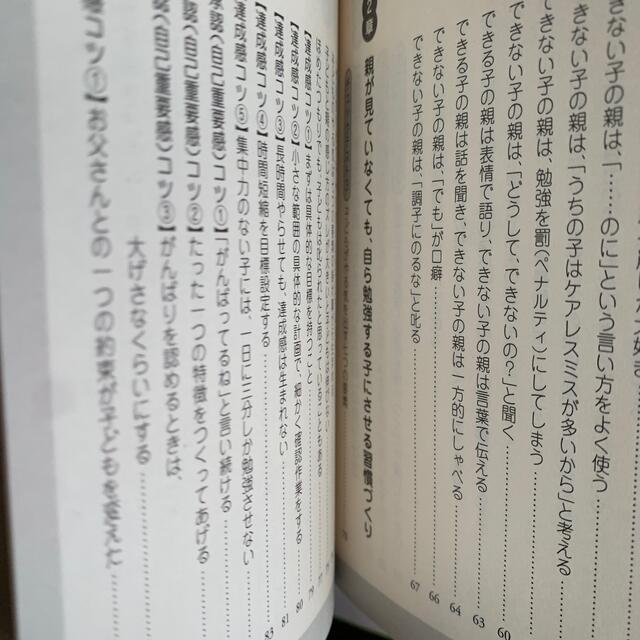 きない子の親は、「……のに」という言い方をよく使う
きない子の親は、「うちの子はケアレスミスが多いから」と考える
できない子の親は、勉強を罰(ペナルティ)にしてしまう
できない子の親は、「どうして、できないの?」と聞く 60
できる子の親は表情で語り、できない子の親は言葉で伝える 63
できる子の親は話を聞き、できない子の親は一方的にしゃべる 64
できない子の親は、「でも」が口癖 66
できない子の親は、「調子にのるな」と叱る 67
2章 親が見ていなくても、自ら勉強する子にさせる習慣づくり
【達成感コツ①】まずは具体的な目標を持つこと 79
【達成感コツ②】小さな範囲の具体的な計画で、細かく確認作業をする 80
【達成感コツ③】長時間やらせても、達成感は生まれない 81
【達成感コツ④】時間短縮を目標設定する 83
【達成感コツ⑤】集中力のない子には、一日に三分しか勉強させない
認〈自己重要感〉コツ①】「がんばってるね」と言い続ける
認〈自己重要感〉コツ②】たった一つの特徴をつくってあげる
〈自己重要感〉コツ③】がんばりを認めるときは、
大げさなくらいにする
コツ①】お父さんとの一つの約束が子どもを変えた